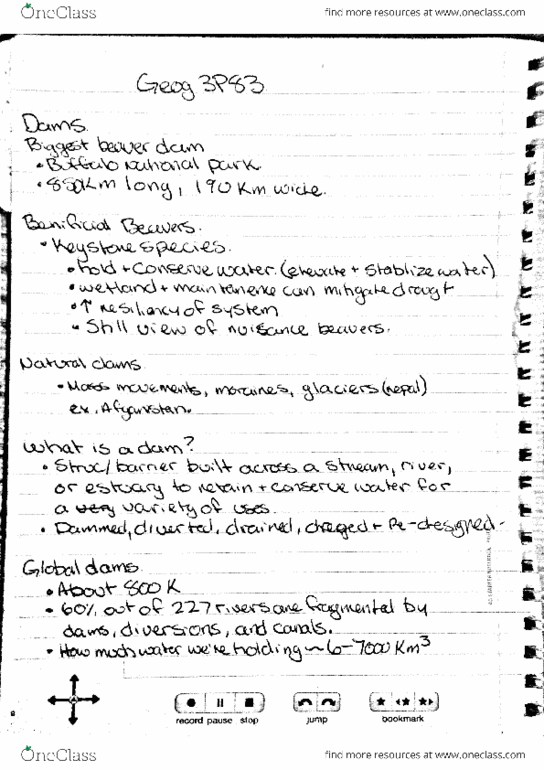 OneClass
find more resources at www.oneclass.com
Geog 3P83
Dams
Biggest beaver dam
• Buffalo national park
• 850Km long, 190 Km wide.
Benificial Beavers.
• Keystone species.
• hold + conserve water. (elevate + stablize water)
• wetland + maintenence can mitigate drougt
• ↑ resiliency of system
• Still view of nuisance beavers.
Natural dams
• Mass movements, moraines, glaciers (nepal)
ex. Afganistan.
What is a dam?
• Struc/barrier built across a stream, river,
or estuary to retain + conserve water for
a very variety of uses.
• Dammed, diverted, drained, + Re-designed -
Global dams
• About 800 K
• 60% out of 227 rivers are fragmented by
dams, diversions, and canals.
• How much water we're holding ~ 6-7000 Km³
record pause stop
jump
bookmark
OneClass
find more resources at www.oneclass.com